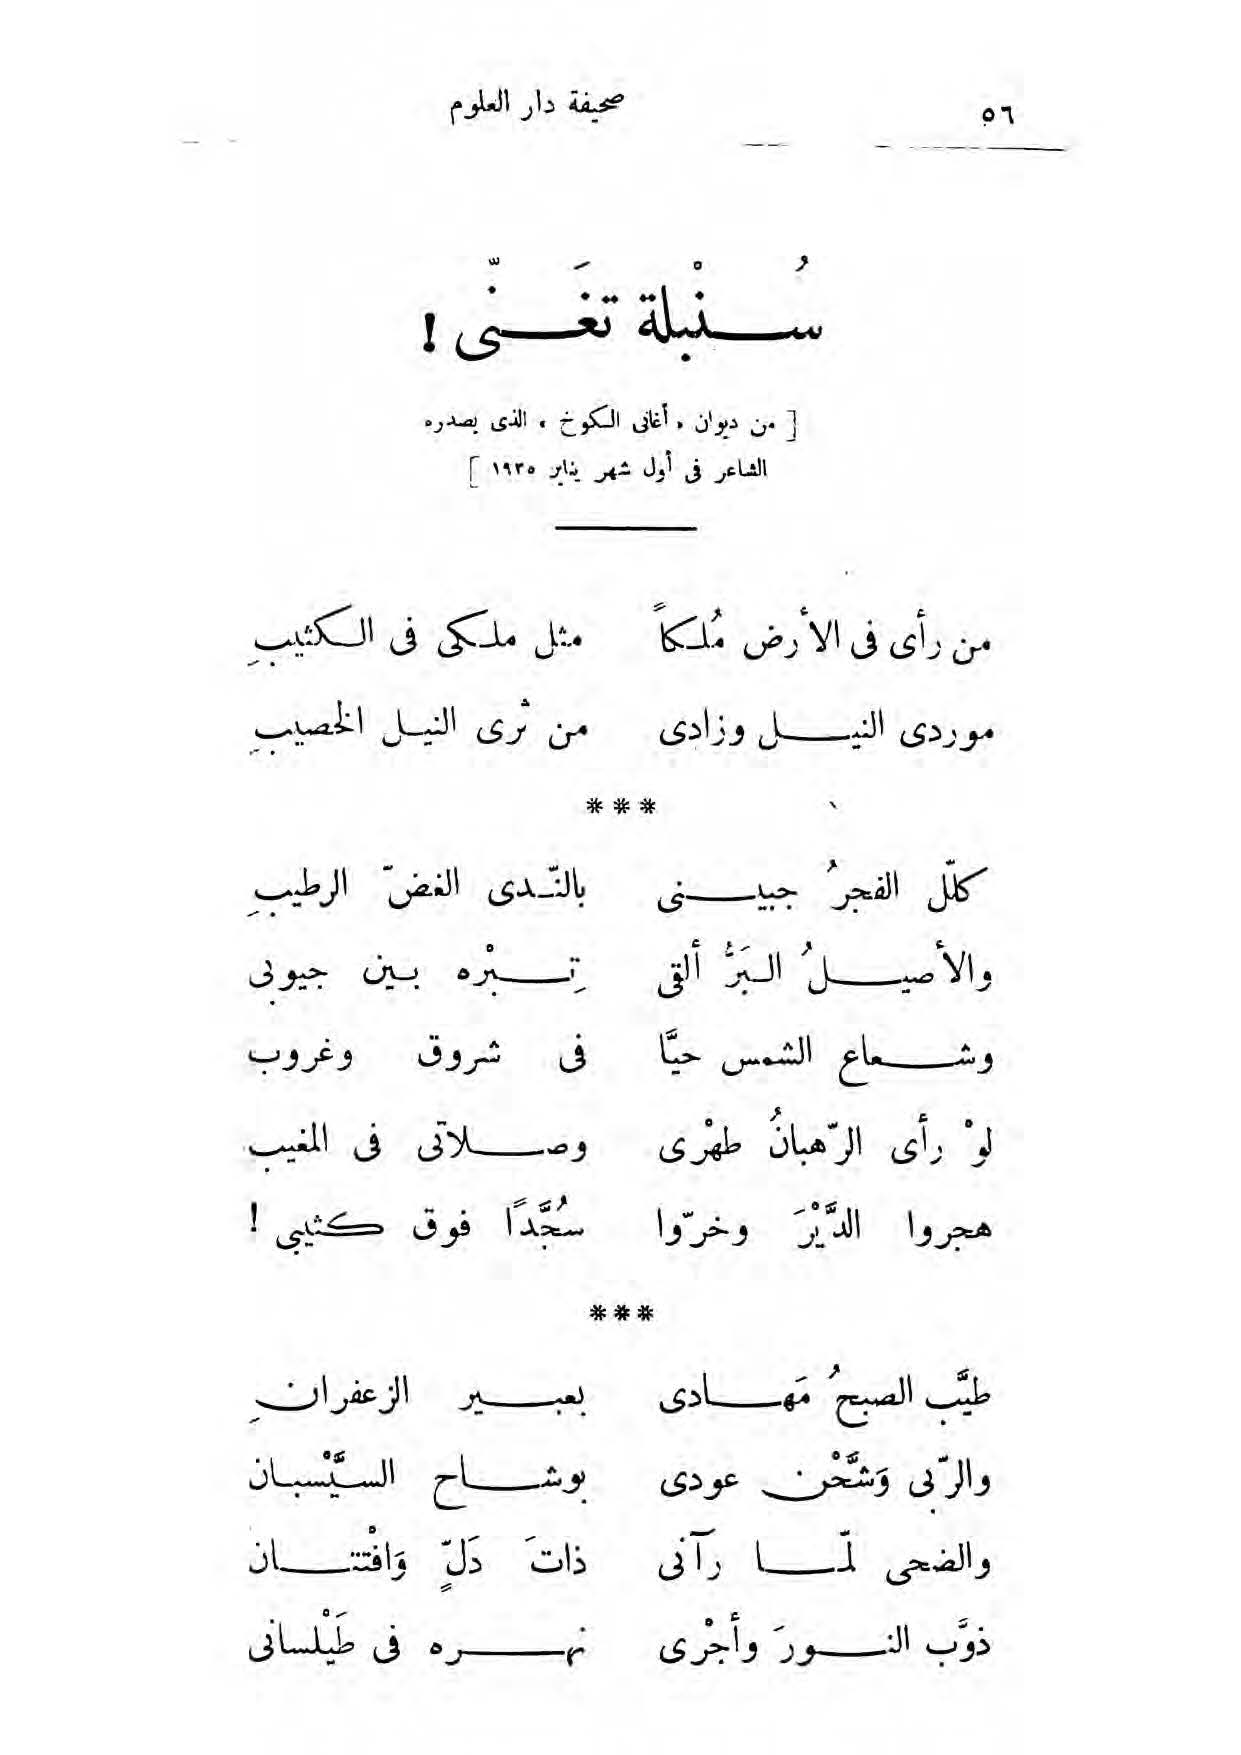 ٥٦ صحيفة دار العلوم
سُنْبلة تغَنّى !
[ من ديوان « أغانى الكوخ » الذى يصدره
الشاعر فى أول شهر يناير ١٩٣٥ ]
من رأى فى الأرض مُلكاً مثل ملكى فى الكثيبِ
موردى النيل وزادى من ثرى النيل الخصيبِ
***
كلّل الفجرُ جبينى بالنّدى الغضّ الرطيبِ
والأصيلُ البَرُّ ألقى تِبْره بين جيوبى
وشعاع الشمس حيَّا فى شروق وغروب
لوْ رأى الرّهبانُ طهْرى وصلاتى فى المغيب
هجروا الدَّيْرَ وخرّوا سُجَّدًا فوق كثيبى !
***
طيَّب الصبحُ مَهادى بعبير الزعفرانِ
والرّبى وَشَّحْن عودى بوشاح السَّيْسبان
والضحى لمّا رآنى ذاتَ دَلٍّ وَافْتتان
ذوَّب النورَ وأجْرى نهره فى طَيْلسانى